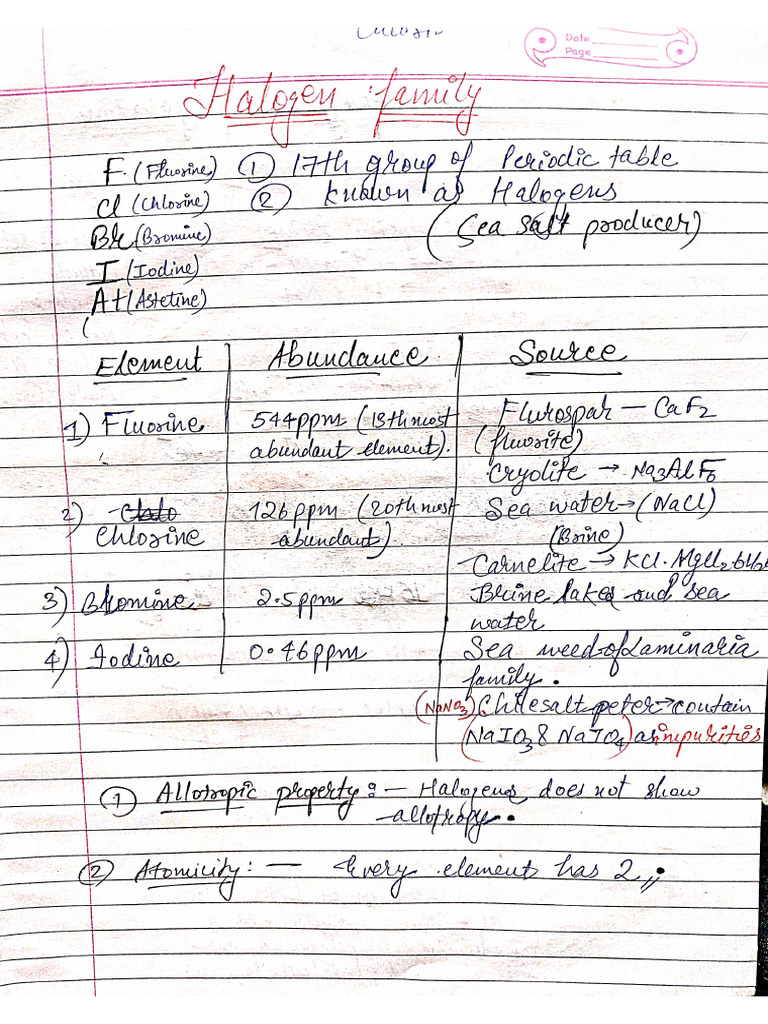 Date
Page
Halogen family
F. (Fluorine) ① 17th group of Periodic table
Cl (Chlorine) ② known as Halogens
Br (Bromine) (Sea salt producer)
I (Iodine)
At (Astetine)
Element Abundance Source
1) Fluorine 544ppm (13th most Flurospar — CaF2
abundant element). (fluorite)
Cryolite → Na3AlF6
2) 126ppm (20th most Sea water → (NaCl)
Chlorine abundant). (Brine)
Carnelite → KCl.MgCl2.6H2O
3) Bromine 2.5ppm Brine lakes and sea
water
4) Iodine 0.46ppm Sea weed of Laminaria
family.
(NaNO3) Chilesalt peter → contain
(NaIO3 & NaIO4) as impurities
① Allotropic property :- Halogens does not show
allotropy.
② Atomicity :- Every element has 2,